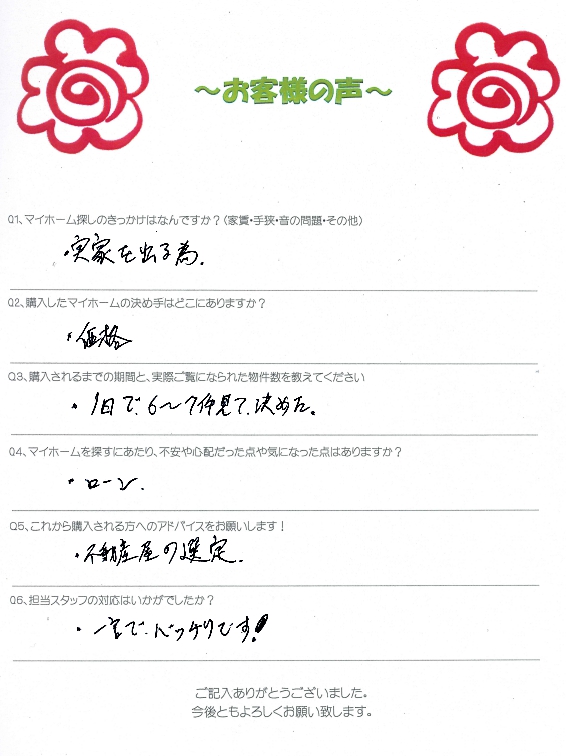 ～お客様の声～
Q1、マイホーム探しのきっかけはなんですか？（家賃・手狭・音の問題・その他）
・実家を出る為.
Q2、購入したマイホームの決め手はどこにありますか？
・価格
Q3、購入されるまでの期間と、実際ご覧になられた物件数を教えてください
・1日で、6〜7件見て、決めた。
Q4、マイホームを探すにあたり、不安や心配だった点や気になった点はありますか？
・ローン.
Q5、これから購入される方へのアドバイスをお願いします！
・不動産屋の選定.
Q6、担当スタッフの対応はいかがでしたか？
・一言で、バッチリです！
ご記入ありがとうございました。
今後ともよろしくお願い致します。